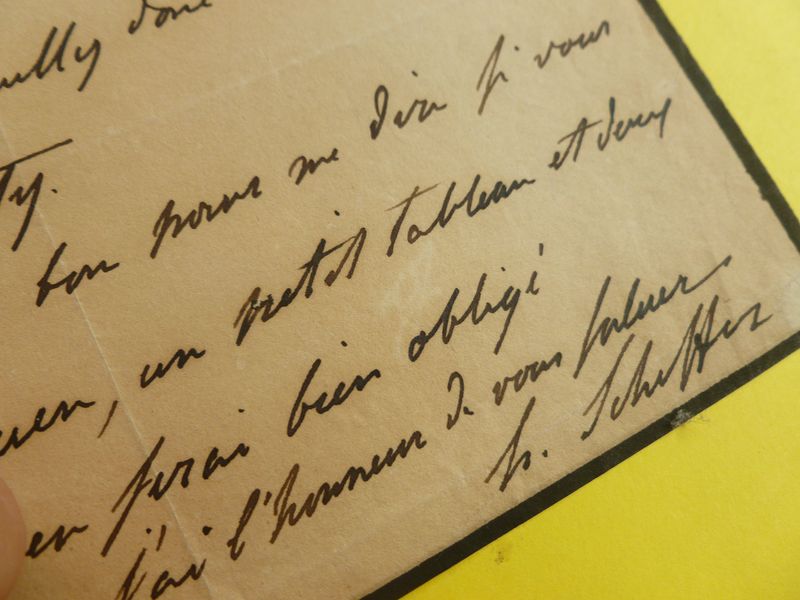 donc
ty.
bon pour me dire si vous
un petit tableau et deux
en serai bien obligé
j'ai l'honneur de vous saluer
h. Scheffer